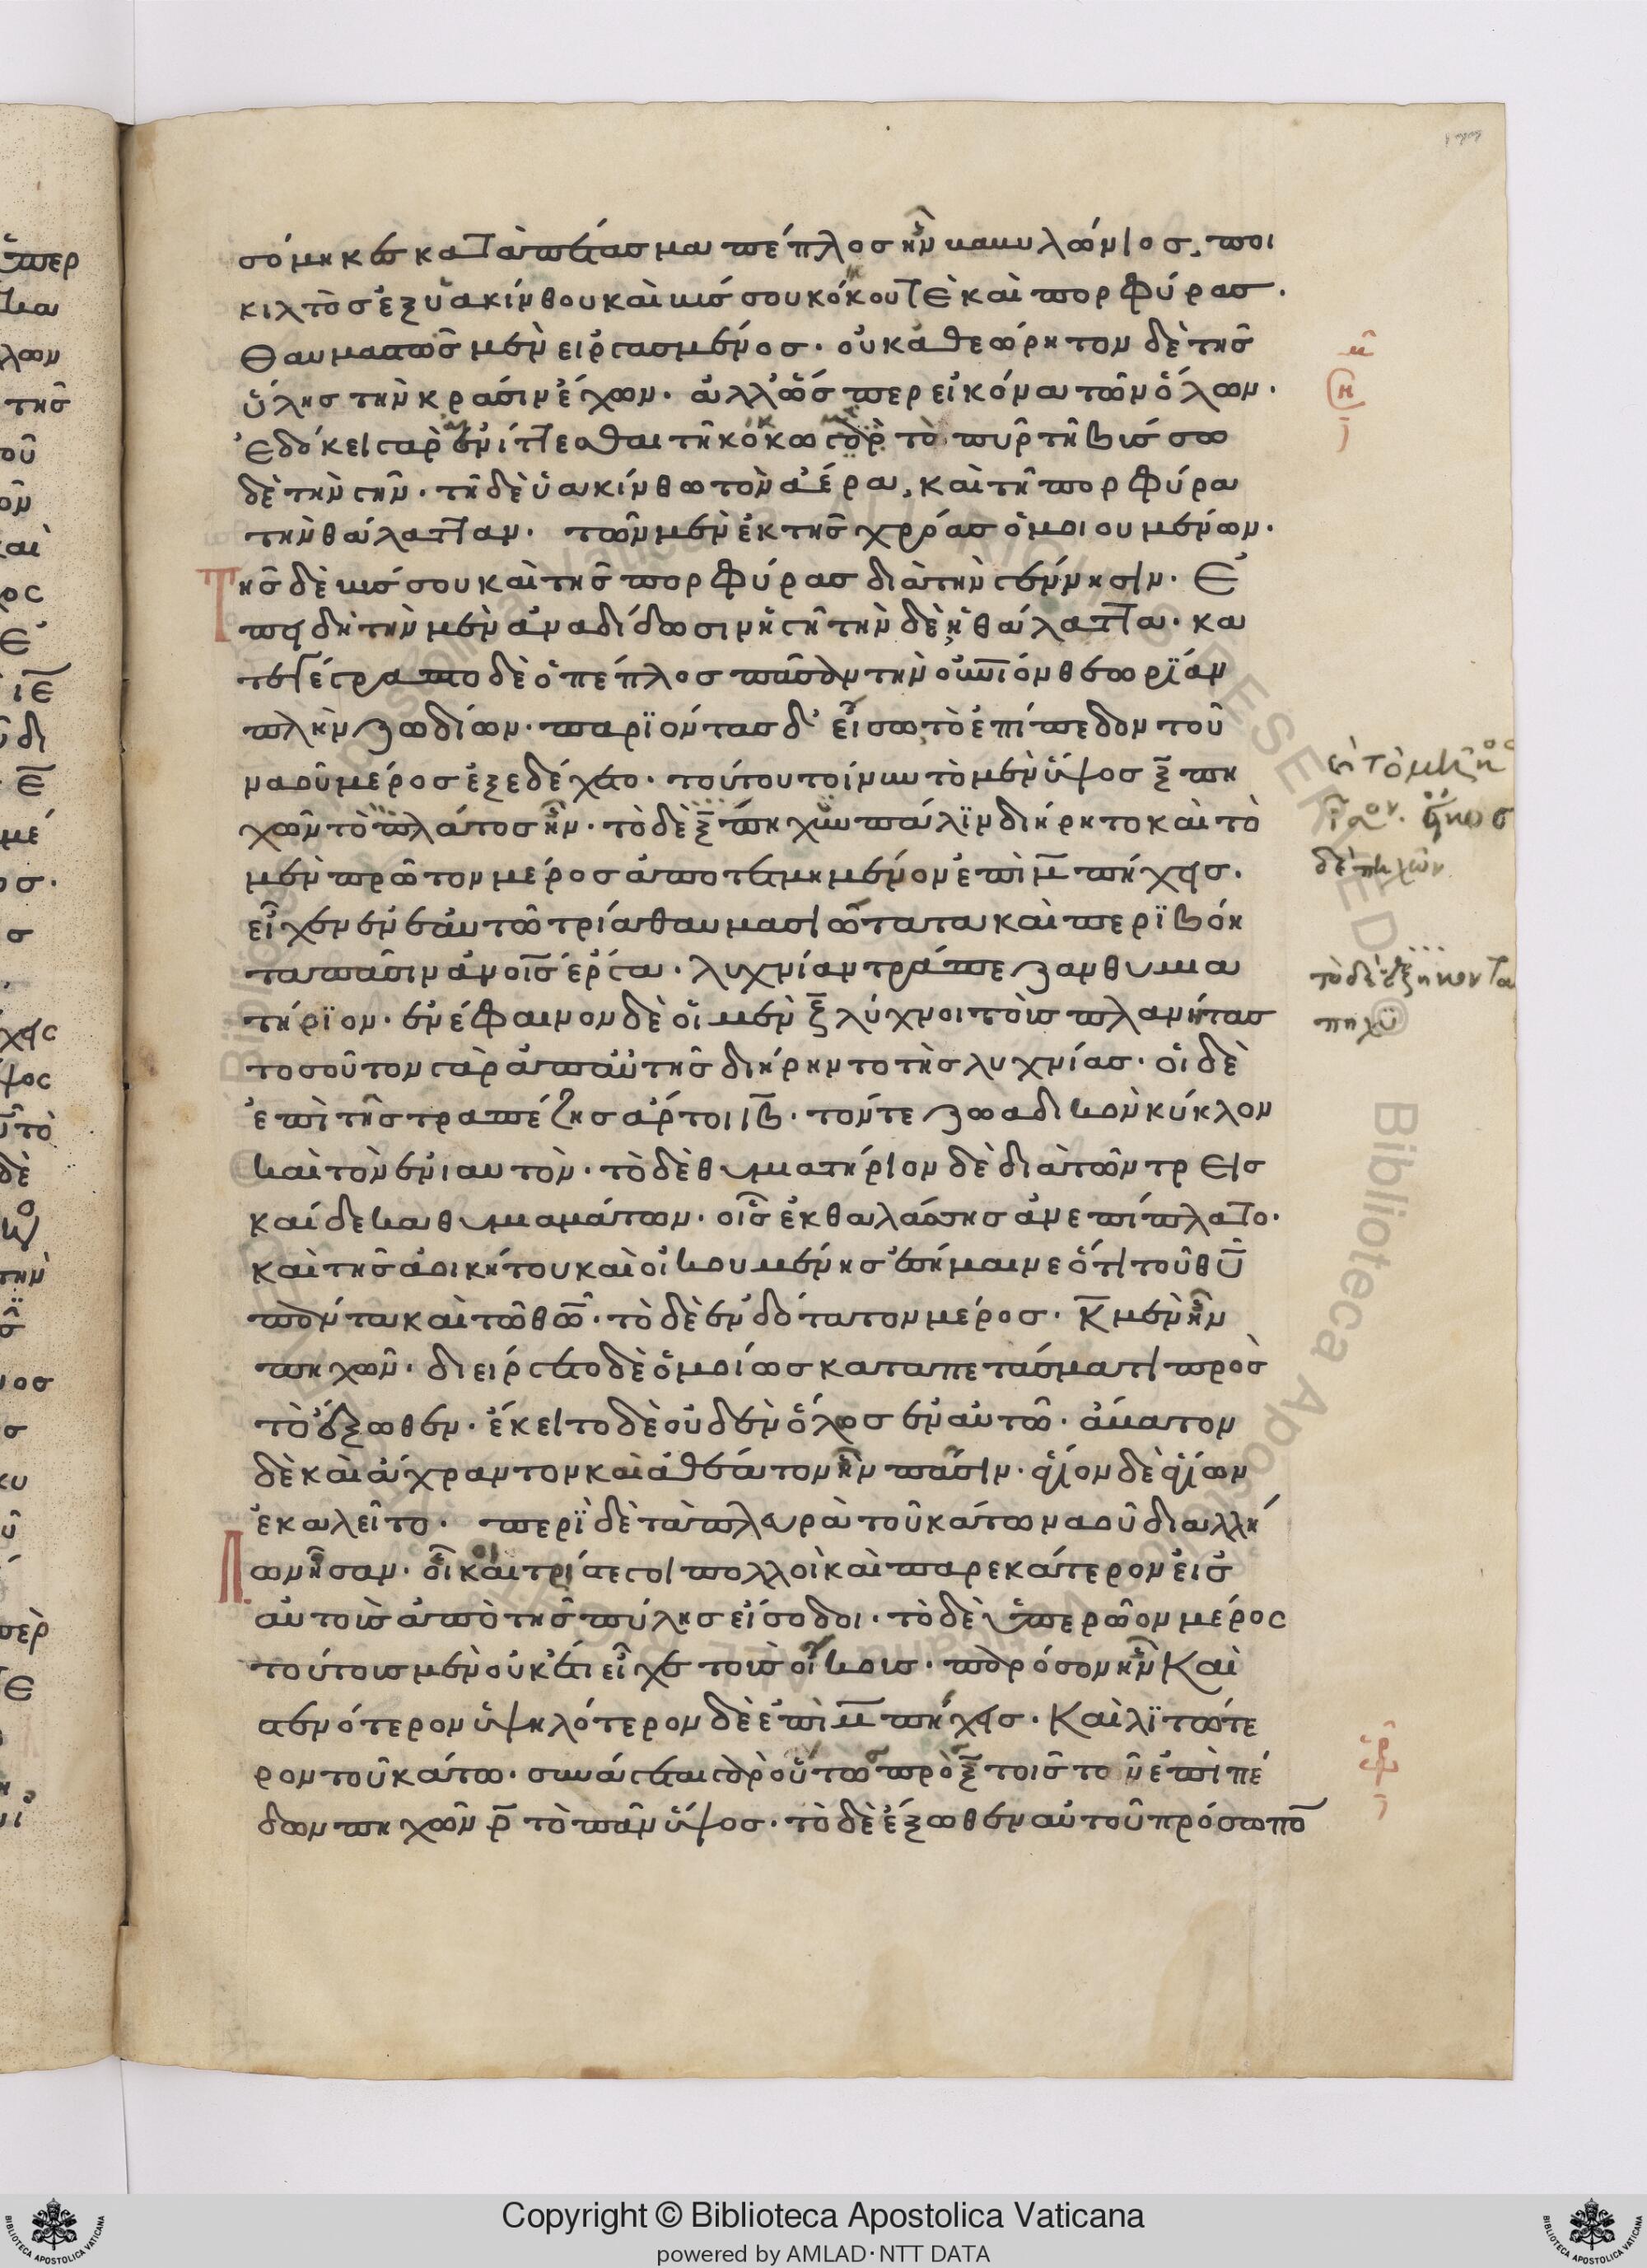 σόμηκες καταπέτασμα πέπλος ἦν βαβυλώνιος, ποι
κιλτὸς ἐξ ὑακίνθου καὶ βύσσου κόκου τὲ καὶ πορφύρας.
θαυμαστῶς μὲν εἰργασμένος. οὐκ ἀθεώρητον δὲ τῆς
ὕλης τὴν κράσιν ἔχων. ἀλλ' ὥσπερ εἰκόνα τῶν ὅλων.
ἐδόκει γὰρ αἰνίττεσθαι τῆ κόκω γὰρ τὸ πῦρ τῆ βύσσω
δὲ τὴν γῆν. τῆ δὲ ὑακίνθω τὸν ἀέρα, καὶ τῆ πορφύρα
τὴν θάλατταν. τῶν μὲν ἐκ τῆς χρόας ὁμοιουμένων.
Τῆς δὲ βύσσου καὶ τῆς πορφύρας διὰ τὴν γένησιν. ἐ
πειδὴ τὴν μὲν ἀναδίδωσιν ἡ γῆ τὴν δὲ ἡ θάλαττα. κα
τεγέγραπτο δὲ ὁ πέπλος πᾶσαν τὴν οὐνιόν θεωρίαν
πλὴν ζωδίων. παριόντας δ' εἴσω τὸ ἐπίπεδον τοῦ
ναοῦ μέρος ἐξεδέχετο. τούτου τοίνυν τὸ μὲν ὕψος ξ πη
χῶν τὸ πλάτος ἦν. τὸ δὲ ξ πήχυ πάλιν διήρητο καὶ τὸ
μὲν πρῶτον μέρος ἀποτετμημένον ἐπὶ μ πήχεις.
εἶχεν ἐν ἑαυτῶ τρία θαυμασιώτατα καὶ περιβόη
τα πᾶσιν ἀνοῖς ἔργα. λυχνίαν τράπεζαν θυμια
τήριον. ἐνέφαινον δὲ οἱ μὲν ξ λύχνοι τοὺς πλανήτας
τοσοῦτον γὰρ ἀπ' αὐτῆς διήρηντο τῆς λυχνίας. οἱ δὲ
ἐπὶ τῆς τραπέζης ἄρτοι ιβ. τόν τε ζωαδικὸν κύκλον
καὶ τὸν ἐνιαυτόν. τὸ δὲ θυματήριον δὲ διὰ τῶν τρεῖς
καίδεκα θυμαμάτων. οἷς ἐκ θαλάσσης ἀνεπίπλατο.
καὶ τῆς ἀοικήτου καὶ οἰκουμένης ἐσήμαινε ὅτι τοῦ θυ
πάντα καὶ τῶ θω. τὸ δὲ ἐνδότατον μέρος. κ μὲν ἦν
πηχῶν. διείργετο δὲ ὁμοίως καταπετάσματι πρὸς
τὸ ἔξωθεν. ἔκειτο δὲ οὐδὲν ὅλως ἐν αὐτῶ. ἄβατον
δὲ καὶ ἄχραντον καὶ ἀθέατον ἦν πᾶσιν. ἅγιον δὲ ἁγίων
ἐκαλεῖτο. περὶ δὲ τὰ πλευρὰ τοῦ κάτω ναοῦ διαλλή
λων ἦσαν. οἶκαι τρίστεγοι πολλοὶ καὶ παρ' ἑκάτερον εἰς
αὐτοὺς ἀπὸ τῆς πύλης εἴσοδοι. τὸ δὲ ὑπερῶον μέρος
τούτους μὲν οὐκέτι εἶχε τοὺς οἴκους. παρόσον ἦν καὶ
στενότερον ὑψηλότερον δὲ ἐπὶ μ πήχεις. καὶ λιτώτε
ρον τοῦ κάτω. συνάγεται γὰρ οὕτω πρὸς ξ τοῖς τοῦ ἐπιπέ
δων πηχῶν ρ τὸ πᾶν ὕψος. τὸ δὲ ἔξωθεν αὐτοῦ πρόσωπο
τὸ δὲ ἑξήκοντα
πηχῦ